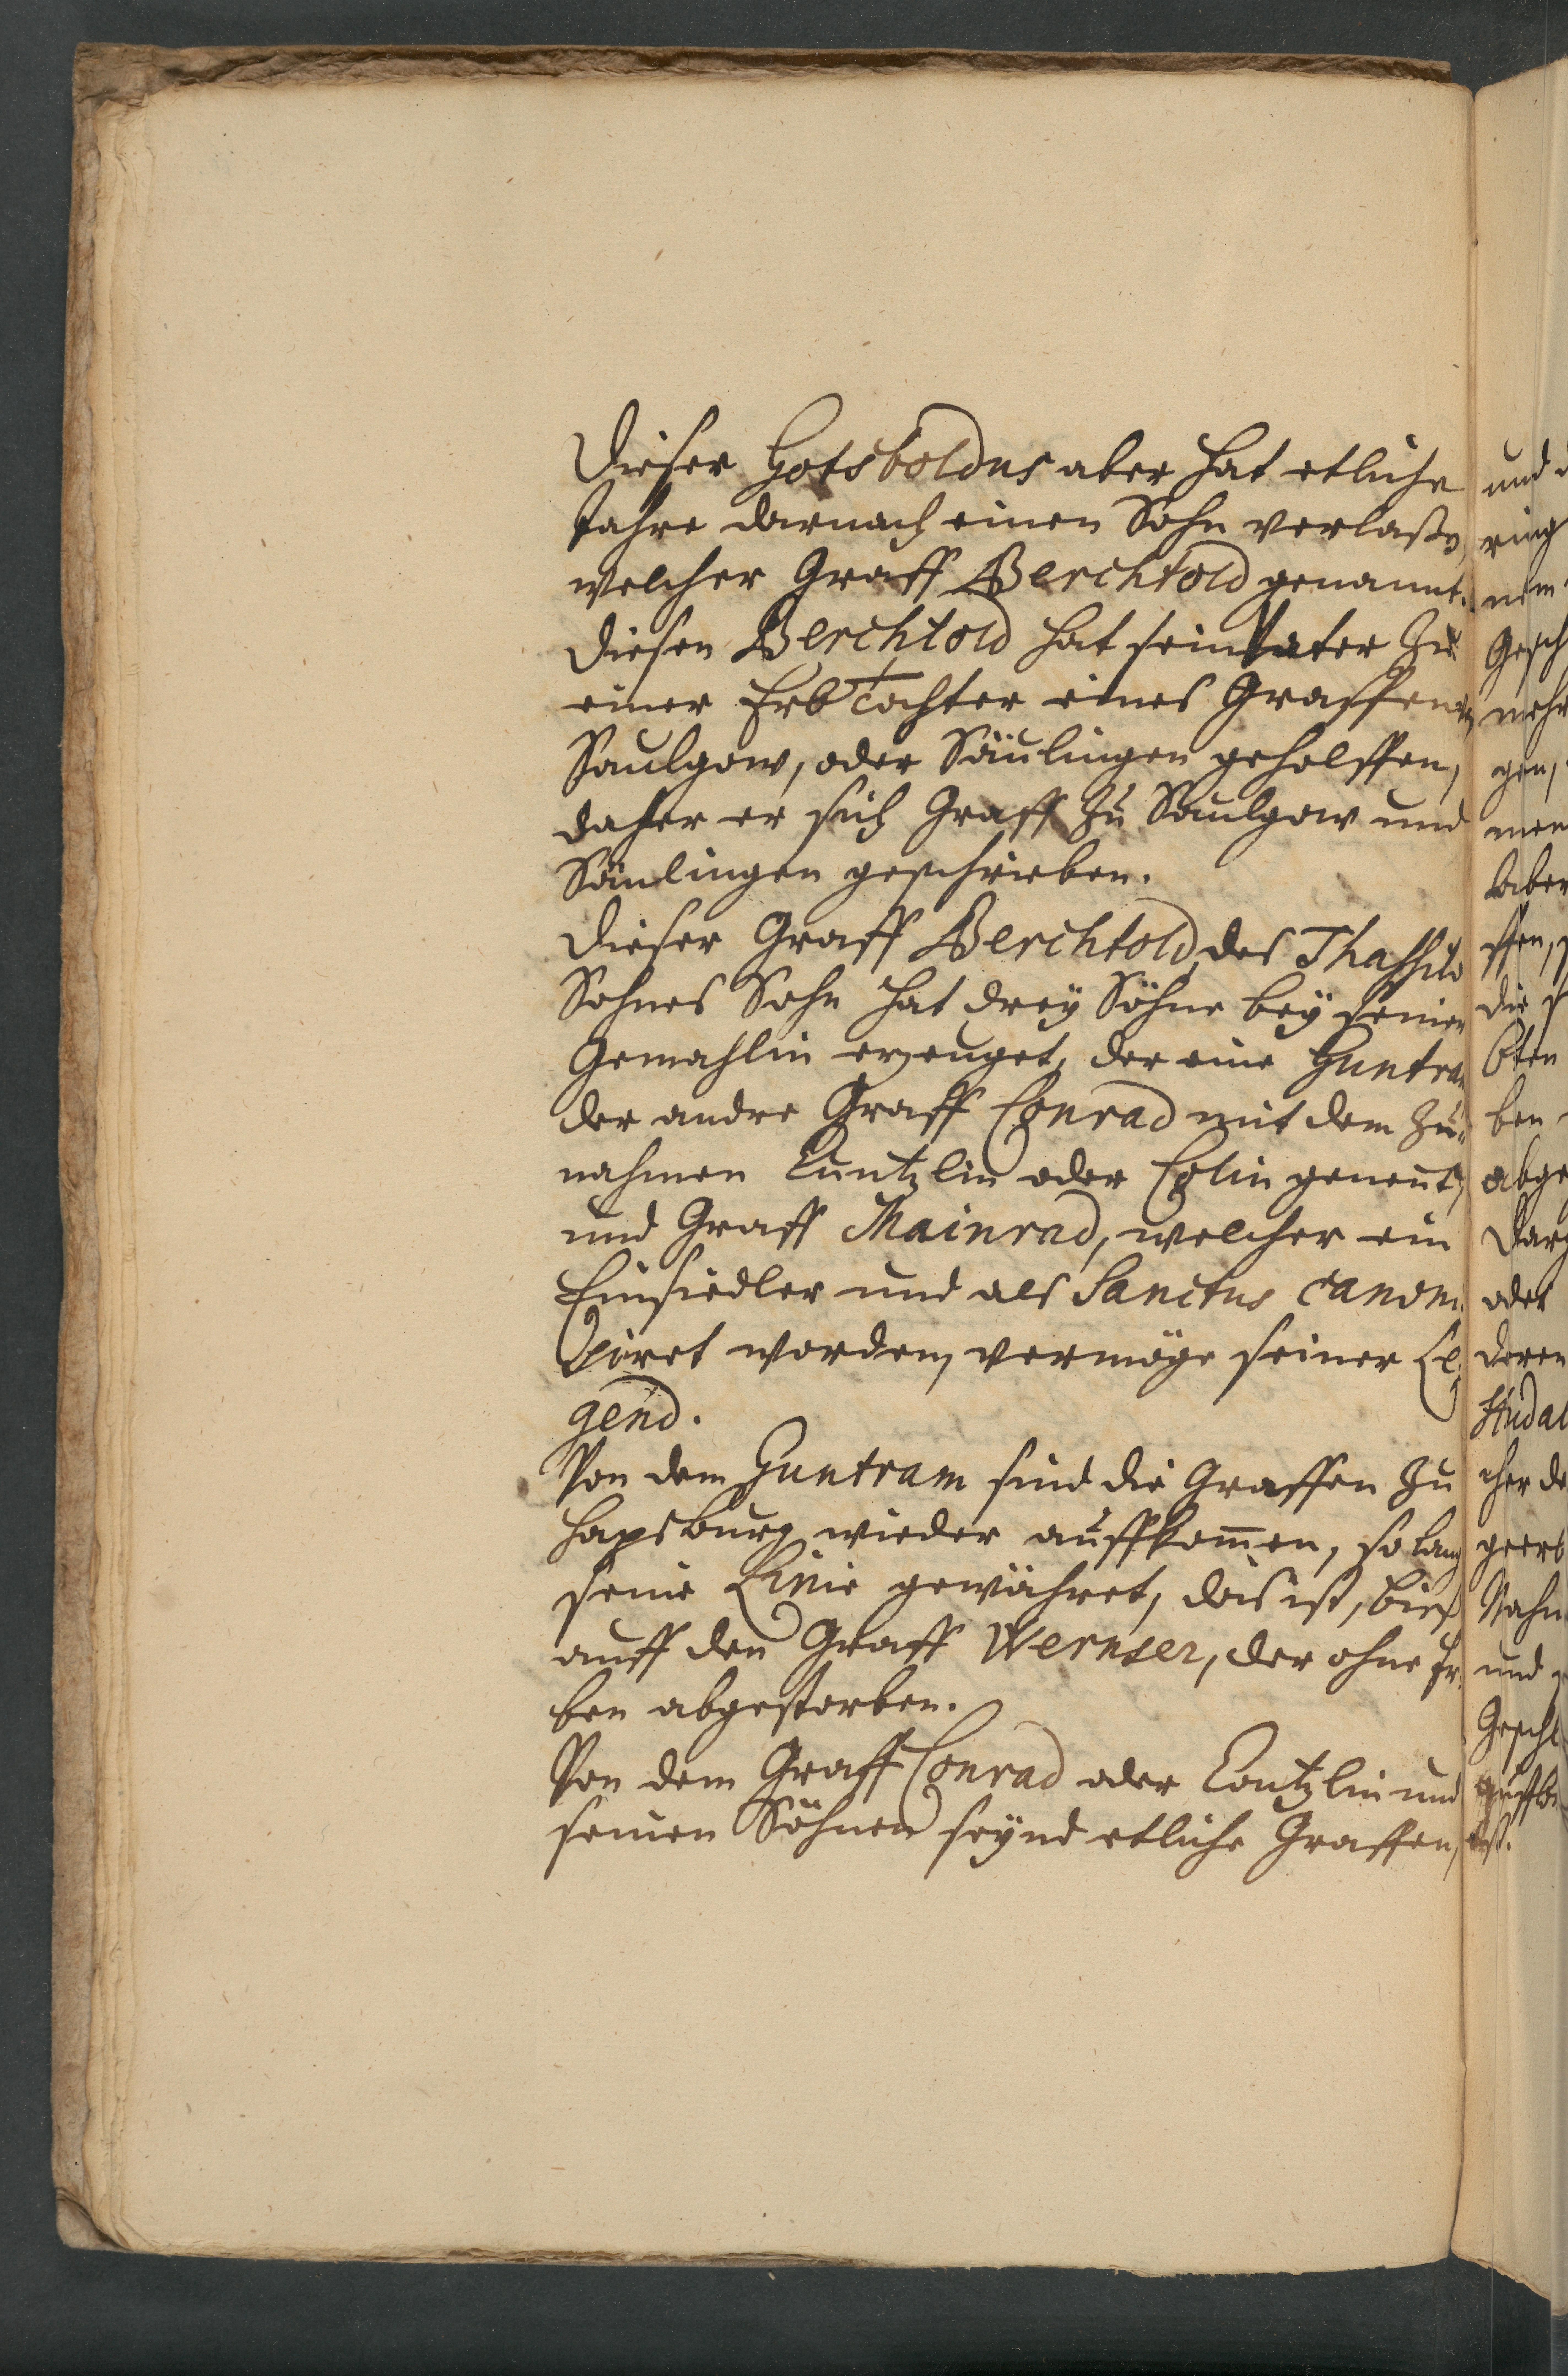 Dieser Gotsboldus aber hat etliche
Jahre darnach einen Sohn verlaßen,
welcher Graff Berchtold genannt.
Diesen Berchtold hat sein Vater zu
einer Erb Tochter eines Graffen
Saulgow, oder Säulingen geholffen,
daher er sich Graff zu Saulgow und
Säulingen geschrieben.
Dieser Graff Berchtold, des Thassilo
Sohnes Sohn hat drey Söhne bey seiner
Gemahlin erzeuget, der eine Guntram
der andre Graff Conrad mit dem Zu-
nahmen Cuntzlin oder Colin genent,
und Graff Mainrad, welcher ein
Einsiedler und als Sanctus canoni-
ciret worden, vermöge seiner Le-
gend.
Von dem Guntram sind die Graffen zu
Hapsburg wieder auffkom̄en, so lang
seine Linie gewähret, das ist, bieß
auff den Graff Wernser, der ohne Er-
ben abgestorben.
Von dem Graff Conrad oder Contzlin und
seinen Söhnen seynd etliche Graffen,